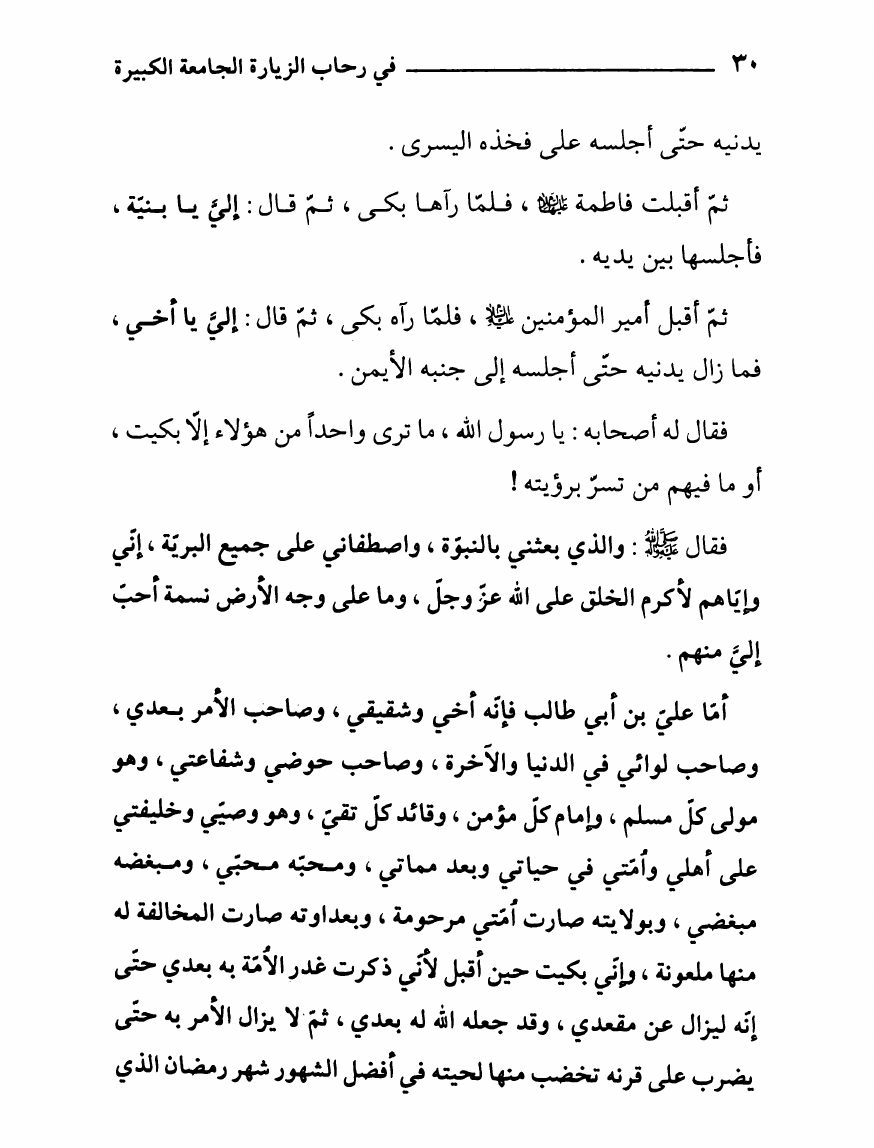 ٣٠ في رحاب الزيارة الجامعة الكبيرة
يدنيه حتّى أجلسه على فخذه اليسرى .
ثمّ أقبلت فاطمة عليها السلام ، فـلمّا رآهـا بكـى ، ثـمّ قـال : إليَّ يـا بـنيّة ،
فأجلسها بين يديه .
ثمّ أقبل أمير المؤمنين عليه السلام ، فلمّا رآه بكى ، ثمّ قال : إليَّ يا أخـي ،
فما زال يدنيه حتّى أجلسه إلى جنبه الأيمن .
فقال له أصحابه : يا رسول الله ، ما ترى واحداً من هؤلاء إلّا بكيت ،
أو ما فيهم من تسرّ برؤيته !
فقال ﷺ : والذي بعثني بالنبوّة ، واصطفاني على جميع البريّة ، إنّي
وإيّاهم لأكرم الخلق على الله عزّ وجلّ ، وما على وجه الأرض نسمة أحبّ
إليَّ منهم .
أمّا عليّ بن أبي طالب فإنّه أخي وشقيقي ، وصاحب الأمر بـعدي ،
وصاحب لوائي في الدنيا والآخرة ، وصاحب حوضي وشفاعتي ، وهو
مولى كلّ مسلم ، وإمام كلّ مؤمن ، وقائد كلّ تقيّ ، وهو وصيّي وخليفتي
على أهلي واُمّتي في حياتي وبعد مماتي ، ومـحبّه مـحبّي ، ومـبغضه
مبغضي ، وبولايته صارت اُمّتي مرحومة ، وبعداوته صارت المخالفة له
منها ملعونة ، وإنّي بكيت حين أقبل لأنّي ذكرت غدر الاُمّة به بعدي حتّى
إنّه ليزال عن مقعدي ، وقد جعله الله له بعدي ، ثمّ لا يزال الأمر به حتّى
يضرب على قرنه تخضب منها لحيته في أفضل الشهور شهر رمضان الذي